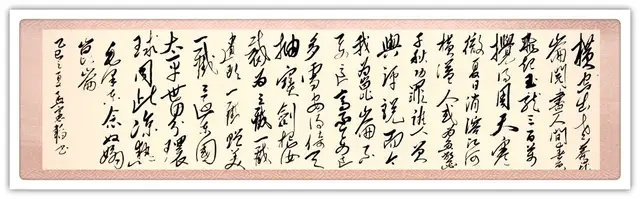 横空出世莽昆
崙阅尽人间春色
飞起玉龙三百万
搅得周天寒
彻夏日消溶江河
横溢人或为鱼鳖
千秋功罪谁人曾
與评说而今
我为昆崙不
要这高不要这
多雪安得倚天
抽宝剑把汝
裁为三截一截
遗欧一截赠美
一截还东国
太平世界环
球同此凉热
毛泽东念奴娇
昆崙
乙巳之夏